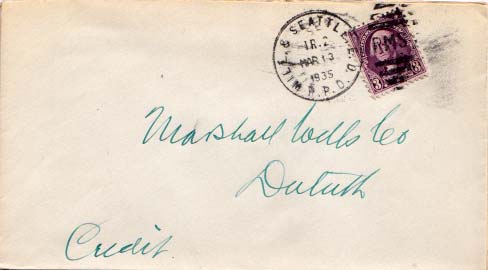 WILL. & SEATTLE E.D.
TR. 2
MAR 13
1935
R.P.O.
RMS
3 3
Marshall Wells Co
Duluth
Credit.